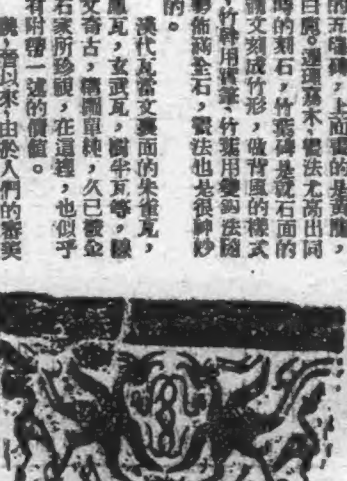 的五瑞碑,上面畫的是黃龍,
白鹿。連理嘉木,畫法尤高出同
時的刻石,竹葉碑是就石面的
 文刻成竹形,做背風的樣式
,竹幹用 ,竹葉用雙鈎法隨
 佈滿全石,畫法也是很神妙
的。
漢代瓦當文裏面的朱雀瓦,
鳳瓦,玄武瓦,闕半瓦等,
文奇古,構圖單純,久已被金
石家所珍視,在這裡,也似乎
有附帶一述的價值。
魏,晉以來,由於人們的審美